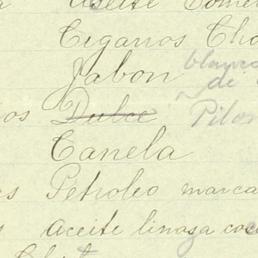 Aseite Comer
Cigarros Cho
Jabon blanco
de
os Dulce Pilon
Canela
Petroleo marca
Aceite linaza coc